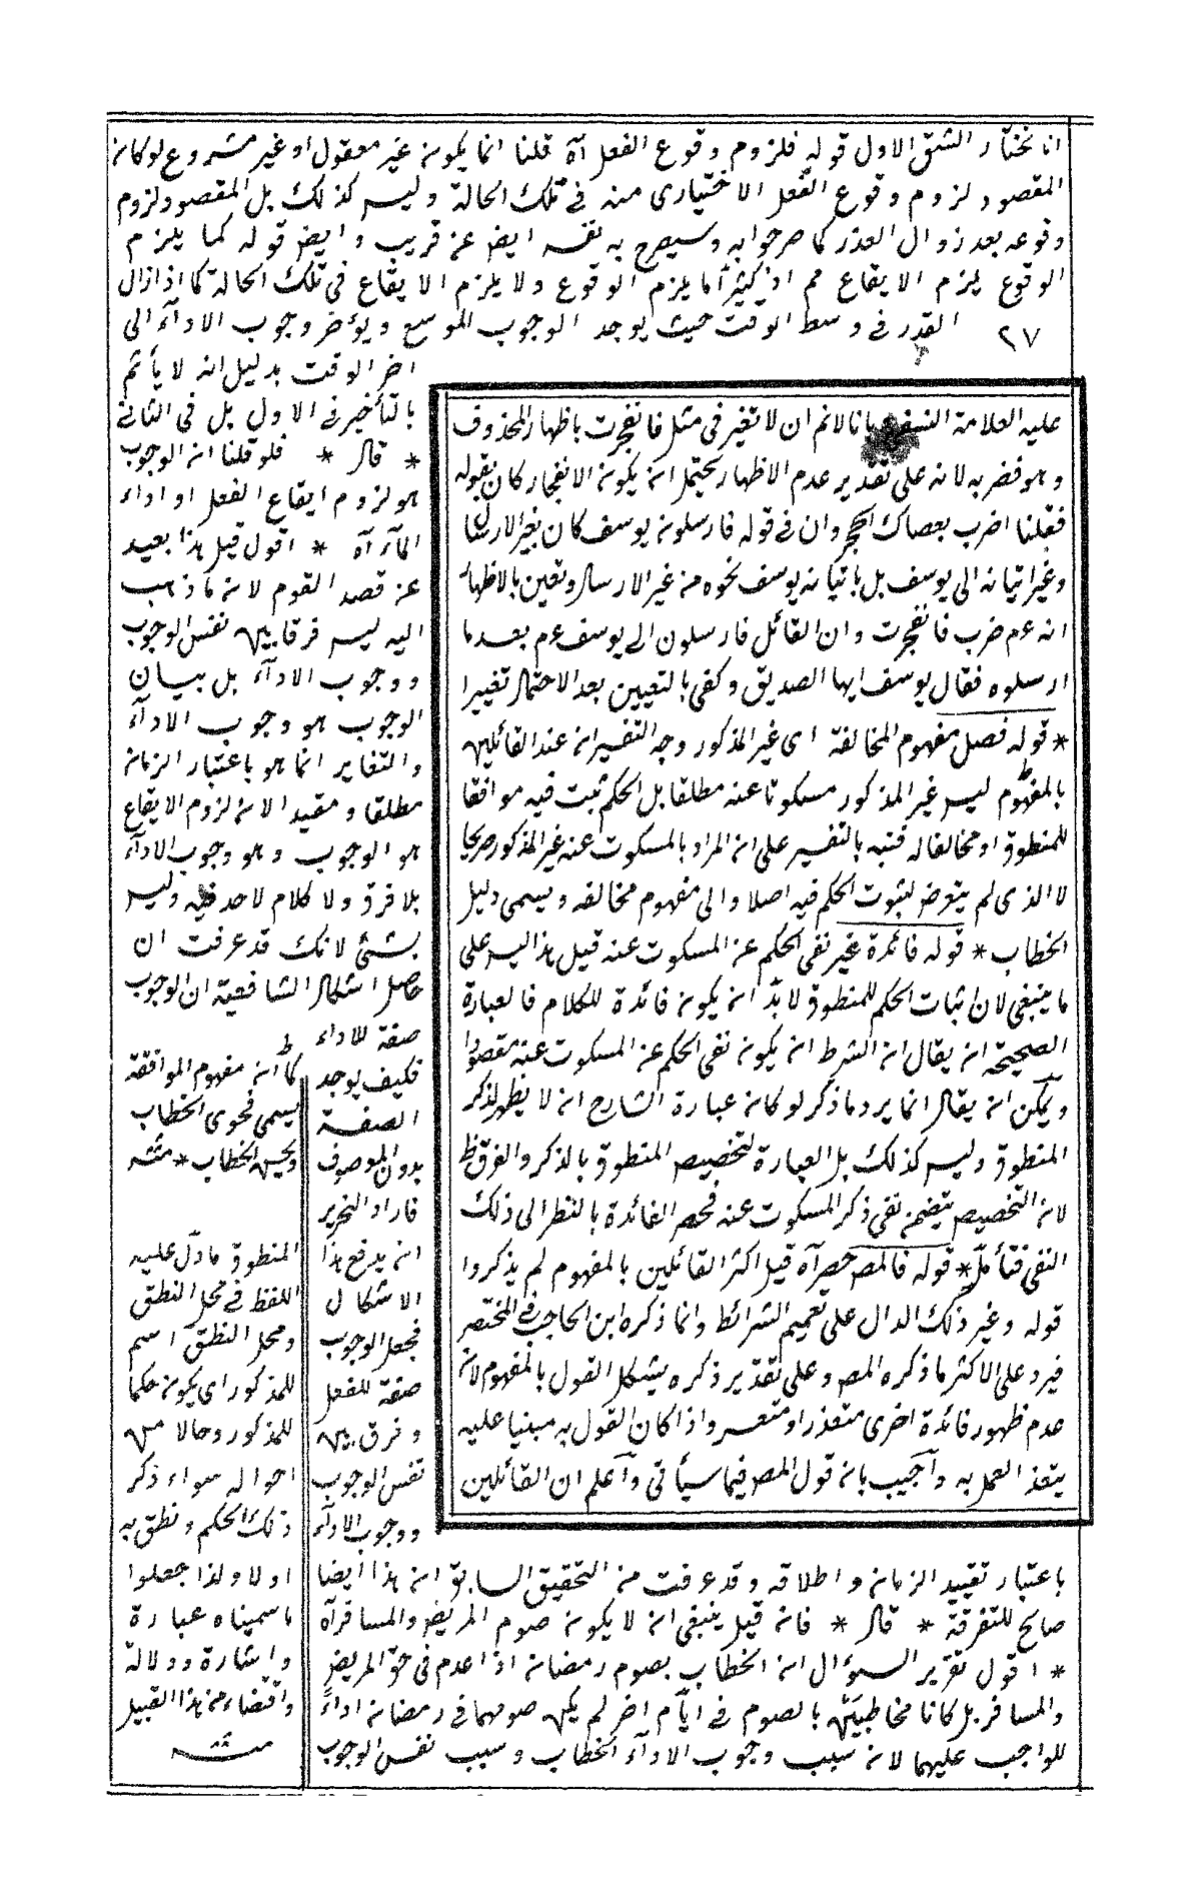 انا نختار الشق الاول قوله فلزوم وقوع الفعل آه قلنا انما يكون غير معقول او غير مشروع لو كان
المقصود لزوم وقوع الفعل الاختيارى منه فى تلك الحالة وليس كذلك بل المقصود لزوم
وقوعه بعد زوال العذر كما صر جوابه وسيصرح به نفسه ايض عن قريب وايض قوله كما يلزم
الوقوع يلزم الايقاع مم اذ كثيرا ما يلزم الوقوع ولا يلزم الايقاع فى تلك الحالة كما اذا زال
العذر فى وسط الوقت حيث يوجد الوجوب الموسع ويؤخر وجوب الاداء الى
٢٧
اخر الوقت بدليل انه لا يأثم
بالتأخير فى الاول بل فى الثانى
* قال * فلو قلنا ان الوجوب
هو لزوم ايقاع الفعل او اداء
المال آه * اقول قيل هذا بعيد
عن قصد القوم لان ما ذهب
اليه ليس فرقا بين نفس الوجوب
ووجوب الادآء بل بيان
الوجوب هو وجوب الادآء
والتغاير انما هو باعتبار الزمان
مطلقا ومقيدا لان لزوم الايقاع
هو الوجوب وهو وجوب الادآء
بلا فرق ولا كلام لاحد فيه وليس
بشئ لانك قد عرفت ان
حاصل اشكال الشافعية ان الوجوب
صفة للاداء
فكيف يوجد
الصفة
بدون الموصوف
فاراد النحرير
ان يدفع هذا
الاشكال
فجعل الوجوب
صفة للفعل
وفرق بين
نفس الوجوب
ووجوب الادآء
باعتبار تقييد الزمان واطلاقه وقد عرفت من التحقيق السابق ان هذا ايضا
صالح للتفرقة * قال * فان قيل ينبغى ان لا يكون صوم المريض والمسافر آه
* اقول تقرير السؤال ان الخطاب بصوم رمضان اذا عدم فى حق المريض
والمسافر بل كانا مخاطبين بالصوم فى ايام اخر لم يكن صومهما فى رمضان اداءً
للواجب عليهما لان سبب وجوب الادآء الخطاب وسبب نفس الوجوب
عليه العلامة النسفى بانا لانم ان لا تغير فى مثل فانفجرت باظهار المحذوف
وهو فضربه لانه على تقدير عدم الاظهار يحتمل ان يكون الانفجار كان بقوله
فقلنا اضرب بعصاك الحجر وان فى قوله فارسلون يوسف كان بغير الارسال
وغير اتيانه الى يوسف بل باتيان يوسف نحوه من غير الارسال وتعين بالاظهار
انه عم ضرب فانفجرت وان القائل فارسلون الى يوسف عم بعد ما
ارسلوه فقال يوسف ايها الصديق وكفى بالتعيين بعد الاحتمال تغييرا
* قوله فصل مفهوم المخالفة اى غير المذكور وجه التفسير ان عند القائلين
بالمفهوم ليس غير المذكور مسكوتا عنه مطلقا بل الحكم ثبت فيه موافقا
للمنطوق او مخالفا له فنبه بالتفسير على ان المراد بالمسكوت عنه غير المذكور صريحا
لا الذى لم يتعرض لثبوت الحكم فيه اصلا والى مفهوم مخالفه ويسمى دليل
الخطاب * قوله فائدة غير نفى الحكم عن المسكوت عنه قيل هذا ليس على
ما ينبغى لان اثبات الحكم للمنطوق لا بدّ ان يكون فائدة للكلام فالعبارة
الصحيحة ان يقال ان الشرط ان يكون نفى الحكم عن المسكوت عنه مقصودا
ويمكن ان يقال انما يرد ما ذكر لو كان عبارة الشارح ان لا يظهر لذكر
المنطوق وليس كذلك بل العبارة لتخصيص المنطوق بالذكر والفرق ظ
لان التخصيص يتضمن نفى ذكر المسكوت عنه فحصر الفائدة بالنظر الى ذلك
النفى فتأمل * قوله فالمص حصر آه قيل اكثر القائلين بالمفهوم لم يذكروا
قوله وغير ذلك الدال على تعميم الشرائط وانما ذكره ابن الحاجب فى المختصر
فيرد على الاكثر ما ذكره المص وعلى تقدير ذكره يشكل القول بالمفهوم لان
عدم ظهور فائدة اخرى متعذر او متعسر واذا كان القول به مبنيا عليه
يتعذر العمل به وآجيب بان قول المص فيما سيأتى وآعلم ان القائلين
كما ان مفهوم الموافقة
يسمى فحوى الخطاب
ولحن الخطاب * منه
المنطوق ما دل عليه
اللفظ فى محل النطق
ومحل النطق اسم
للمذكور اى يكون حكما
للمذكور وحالا من
احواله سواء ذكر
ذلك الحكم ونطق به
اولا ولذا جعلوا
ما سميناه عبارة
واشارة ودلالة
واقتضاء من هذا القبيل
منه